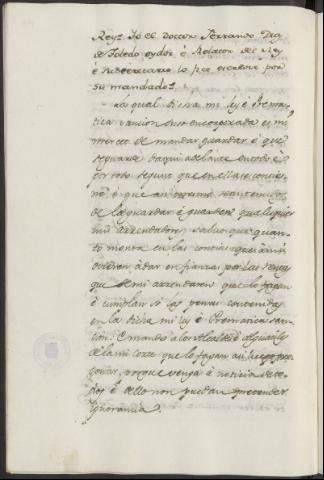 Rey = Yo el Doctor Ferrando Diaz
de Toledo oydor é Relator del Rey
é su Secretario lo fice escribir por
su mandado =
La qual dicha mi ley é Prema
tica sancion suso encorporada es mi
merced de mandar guardar é que
se guarde daqui adelante en todo é
por todo segund que en ella se contie
ne é que ansi mismo sean tenudos
de la guardar é guarden qualesquier
mis arrendadores salvo que quan
to monta en las contias que ansi
ovieren á dar en fianzas por las rentas
que de mi arrendaren que lo fagan
é cumplan so las penas contenidas
en la dicha mi ley é Prematica san
cion. E mando a los Alcaldes é Alguaciles
de la mi corte que lo fagan ansi pre
gonar, porque venga á noticia de to
dos é dello non puedan pretender
ignorancia.